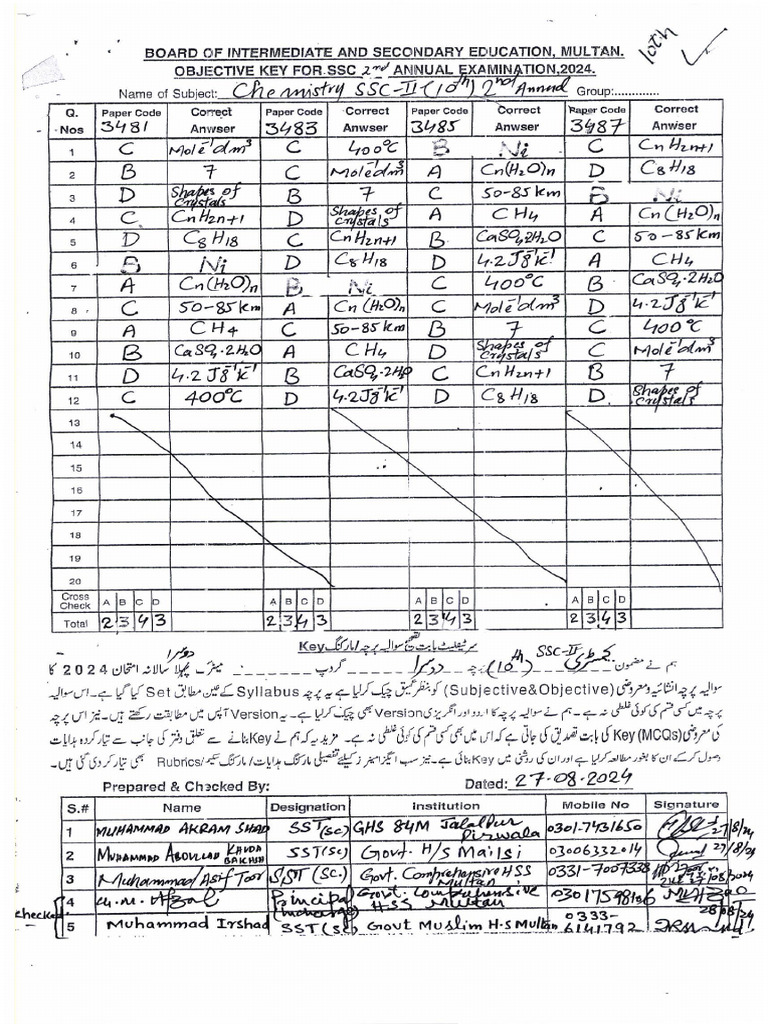 4201
BOARD OF INTERMEDIATE AND SECONDARY EDUCATION, MULTAN.
OBJECTIVE KEY FOR SSC 2nd ANNUAL EXAMINATION,2024.
Name of Subject: Chemistry SSC-II (10th) 2nd Annual Group:............
Q. Nos Paper Code 3481 Correct Anwser Paper Code 3483 Correct Anwser Paper Code 3485 Correct Anwser Paper Code 3487 Correct Anwser
1 C Mole⁻¹dm³ C 400°C B Ni C CnH2n+1
2 B 7 C Mole⁻¹dm³ A Cn(H2O)n D C8H18
3 D Shapes of Crystals B 7 C 50-85km B Ni
4 C CnH2n+1 D Shapes of Crystals A CH4 A Cn(H2O)n
5 D C8H18 C CnH2n+1 B CaSO4.2H2O C 50-85km
6 B Ni D C8H18 D 4.2Jg⁻¹K⁻¹ A CH4
7 A Cn(H2O)n B Ni C 400°C B CaSO4.2H2O
8 C 50-85km A Cn(H2O)n C Mole⁻¹dm³ D 4.2Jg⁻¹K⁻¹
9 A CH4 C 50-85km B 7 C 400°C
10 B CaSO4.2H2O A CH4 D Shapes of Crystals C Mole⁻¹dm³
11 D 4.2Jg⁻¹K⁻¹ B CaSO4.2H2O C CnH2n+1 B 7
12 C 400°C D 4.2Jg⁻¹K⁻¹ D C8H18 D Shapes of Crystals
13
14
15
16
17
18
19
20
Cross Check A B C D A B C D A B C D A B C D
Total 2 3 4 3 2 3 4 3 2 3 4 3 2 3 4 3
سرٹیفکیٹ بابت تصحیح سوالیہ پرچہ/مارکنگ Key
ہم نے مضمون کیمسٹری SSC-II (10th) پرچہ دوسرا گروپ میٹرک پہلا دوسرا سالانہ امتحان 2024 کا
سوالیہ پرچہ انشائیہ و معروضی (Subjective&Objective) کو بنظر عمیق چیک کر لیا ہے یہ پرچہ Syllabus کے عین مطابق Set کیا گیا ہے۔ اس سوالیہ
پرچہ میں کسی قسم کی کوئی غلطی نہ ہے۔ ہم نے سوالیہ پرچہ کا اردو اور انگریزی Version بھی چیک کر لیا ہے۔ یہ Version آپس میں مطابقت رکھتے ہیں۔ نیز اس پرچہ
کی معروضی (MCQs) Key کی بابت تصدیق کی جاتی ہے کہ اس میں بھی کسی قسم کی کوئی غلطی نہ ہے۔ مزید یہ کہ ہم نے Key بنانے سے متعلق دفتر کی جانب سے تیار کردہ ہدایات
وصول کر کے ان کا بغور مطالعہ کر لیا ہے اور ان کی روشنی میں Key بنائی ہے۔ نیز سب ایگزامینرز کیلئے تفصیلی مارکنگ ہدایات/مارکنگ سکیم/Rubrics بھی تیار کر دی گئی ہیں۔
Prepared & Checked By: Dated: 27-08-2024
S.# Name Designation Institution Mobile No Signature
1 MUHAMMAD AKRAM SHAD SST (SC) GHS 84M Jalalpur Pirwala 0301-7431650 27/8/24
2 MUHAMMAD ABDULLAH KAUDA BAKHSH SST(SC) Govt. H/S Mailsi 03006332014 27/8/24
3 Muhammad Asif Toor SST (SC.) Govt. Comprehensive HSS Multan 0331-7007338 27/08/2024
checked 4 Principal (incharge) Govt. Comprehensive H.S.S Multan 28/08/24
5 Muhammad Irshad SST (SC) Govt Muslim H-S Multan 0333-6141792